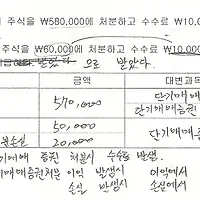 주식을 ₩580,000에 처분하고 수수료 ₩10,0
주식을 ₩60,000에 처분하고 수수료 ₩10,000
으로 받았다.
금액 대변과목
570,000 단기매매
단기매매증권
50,000 단기매매
분손실 20,000
증권 처분시 수수료 발생
매매증권처분 이익 발생시 이익에서
손실 발생시 손실에서